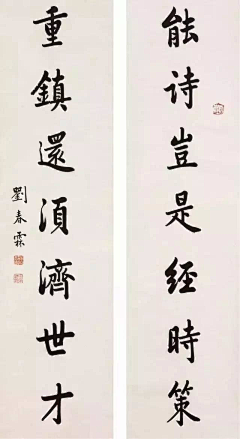 能诗豈是經時策
重鎮還須濟世才
劉春霖